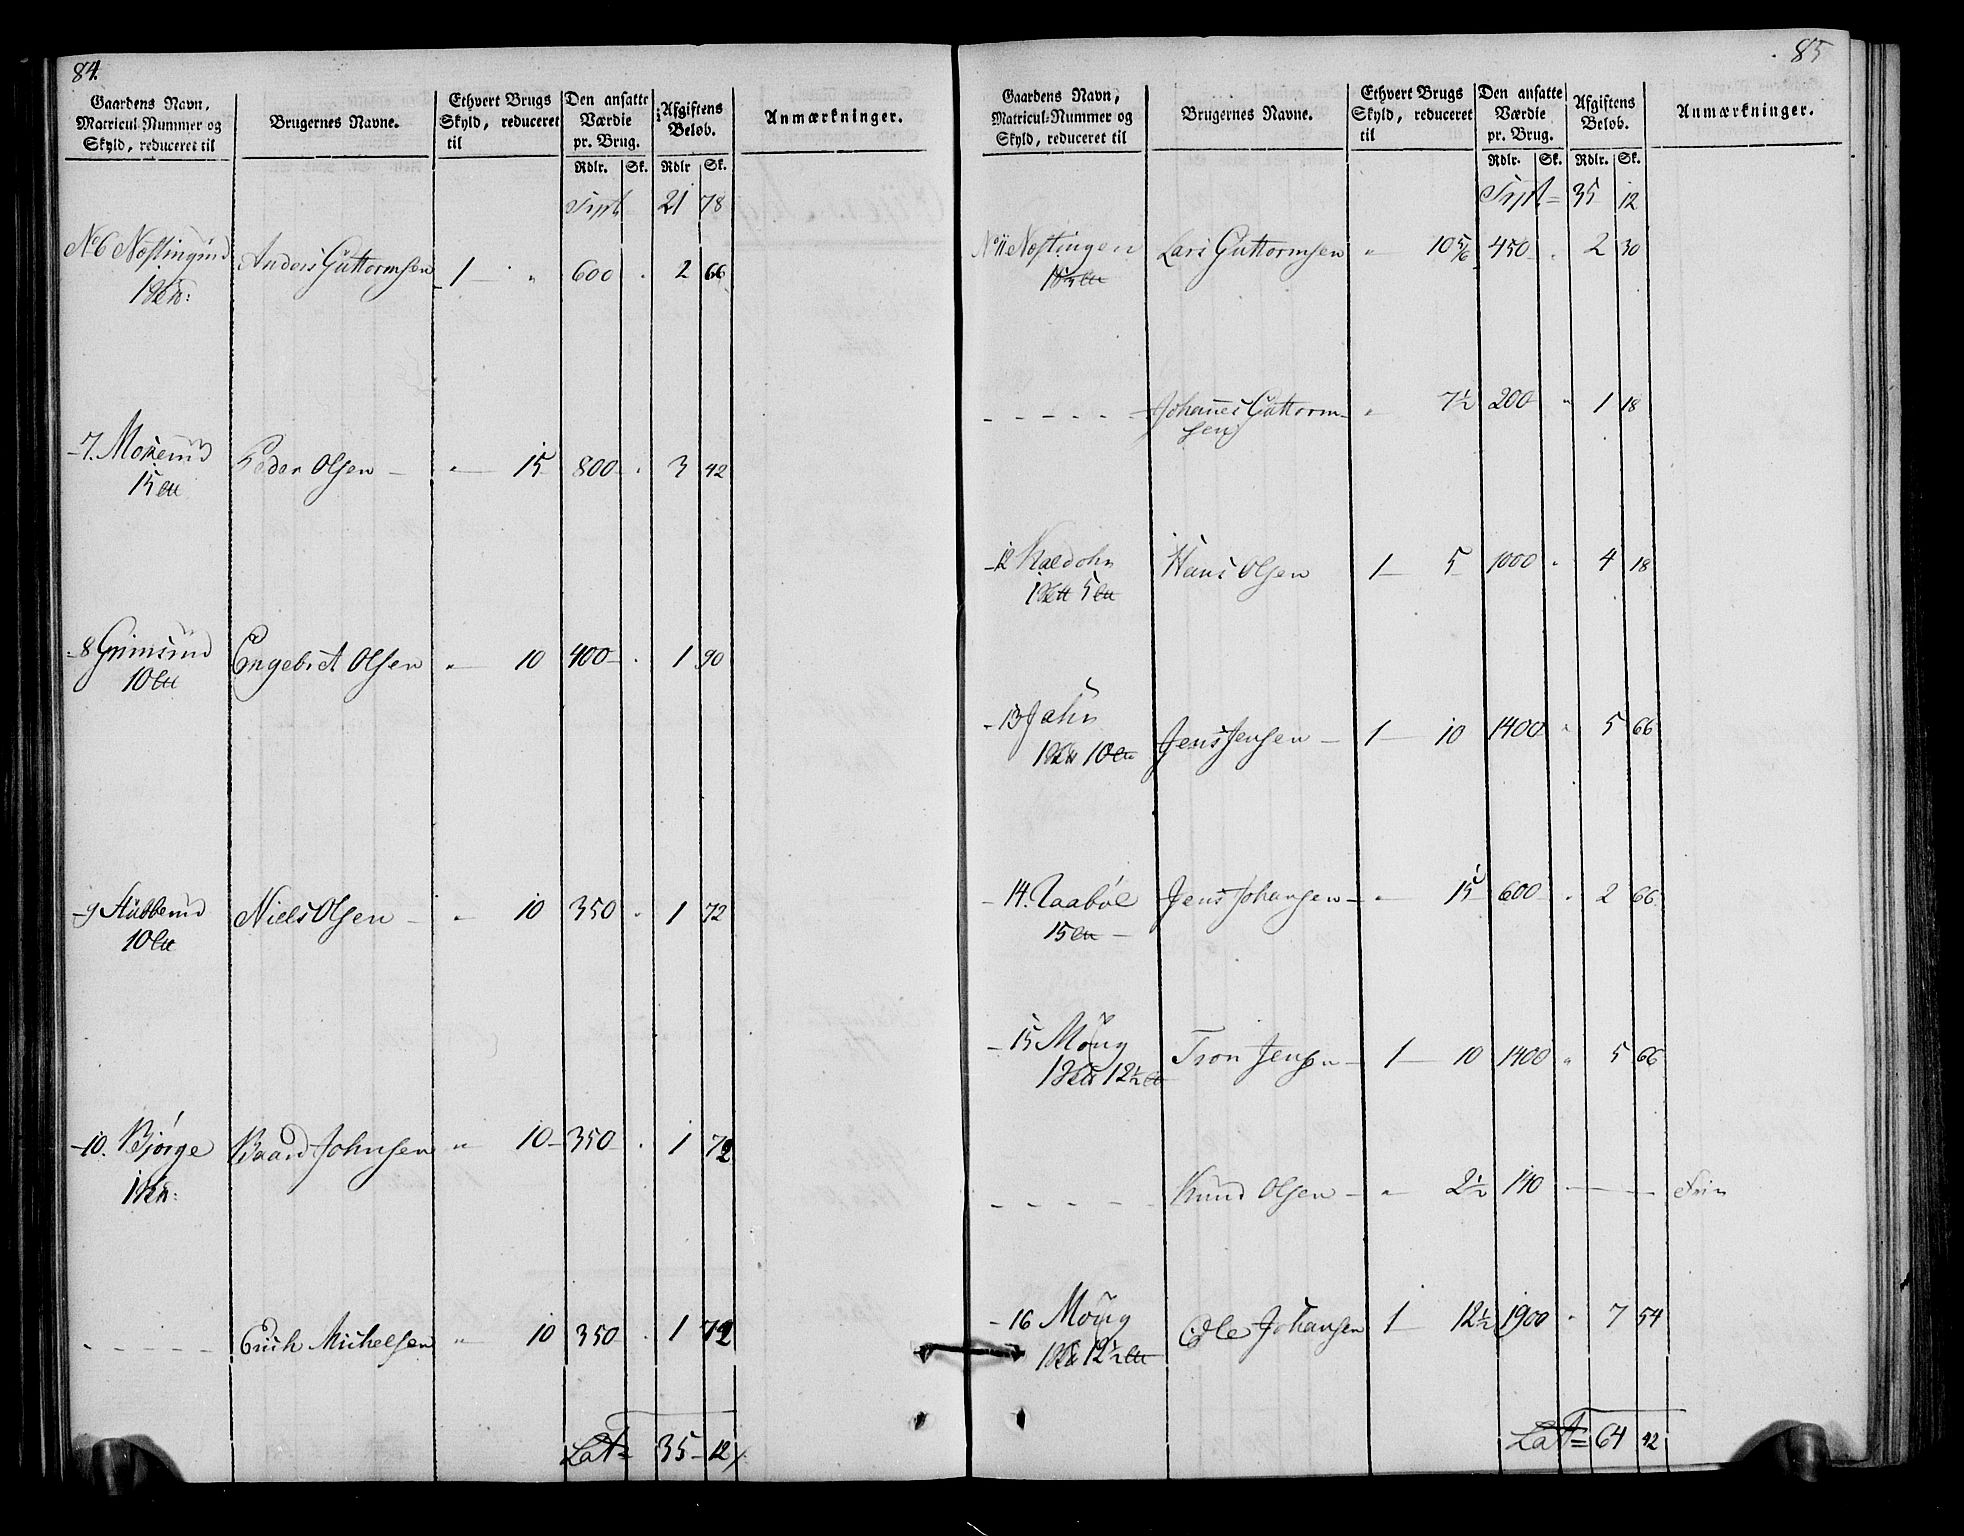 84.
Gaardens Navn, Matricul-Nummer og Skyld, reduceret til | Brugernes Navne. | Ethvert Brugs Skyld, reduceret til | Den ansatte Værdie pr. Brug. Rdlr. Sk. | Afgiftens Beløb. Rdlr Sk. | Anmærkninger.
Trspt 21 78
No 6 Næstingrud Anders Guttormsen 1 " 600 . 2 66
1
7. Mokerud Peder Olsen " 15 800 . 3 42
15
8 Grimsrud Engebret Olsen " 10 400 . 1 90
10
9 Stubberud Niels Olsen " 10 350 . 1 72
10
10. Bjørge Baard Johnsen " 10 350 . 1 72
1
Erich Michelsen " 10 350 . 1 72
Lat 35 12
85
Gaardens Navn, Matricul-Nummer og Skyld, reduceret til | Brugernes Navne. | Ethvert Brugs Skyld, reduceret til | Den ansatte Værdie pr. Brug. Rdlr. Sk. | Afgiftens Beløb. Rdlr. Sk. | Anmærkninger.
Trspt 35 12
No 11 Næstingen Lars Guttormsen " 10 5/6 450 " 2 30
Johannes Guttorm- " 7½ 200 " 1 18
sen
12 Kaldohn Hans Olsen 1 5 1000 " 4 18
1 5
13 Jahr Jens Jensen 1 10 1400 " 5 66
1 10
14. Raabøl Jens Johansen " 15 600 " 2 66
15
15 Moug Tron Jensen 1 10 1400 " 5 66
1 12½
Knud Olsen " 2½ 140 Frie
16 Moug Ole Johansen 1 12½ 1900 " 7 54
1 12½
Lat 64 42